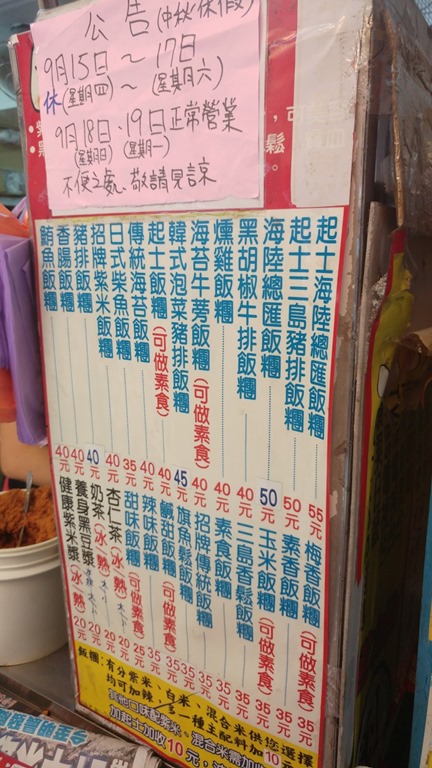 公告(中秋休假)
9月15日～17日
休(星期四)～(星期六)
9月18日、19日正常營業
(星期日)(星期一)
不便之處、敬請見諒
起士海陸總匯飯糰 55元
起士三島豬排飯糰 50元
海陸總匯飯糰 50元
黑胡椒牛排飯糰 40元
燻雞飯糰 40元
海苔牛蒡飯糰(可做素食) 40元
韓式泡菜豬排飯糰 45元
起士飯糰(可做素食) 40元
傳統海苔飯糰 40元
日式柴魚飯糰 35元
招牌紫米飯糰 40元
豬排飯糰 40元
香腸飯糰 40元
鮪魚飯糰 40元
梅香飯糰(可做素食) 35元
素香飯糰 35元
玉米飯糰(可做素食) 35元
三島香鬆飯糰 35元
素食飯糰 35元
招牌傳統飯糰 35元
旗魚鬆飯糰 35元
鹹甜飯糰(可做素食) 35元
辣味飯糰 35元
甜味飯糰(可做素食) 25元
杏仁茶(冰.熱) 20元
奶茶(冰.熱) 20元
養身黑豆漿 20元
健康紫米漿(冰.熱) 20元
飯糰:有分紫米、白米、混合米供您選擇
均可加辣 多一種主配料加10元
其他口味配紫米、混合米需加收
加起士加收10元